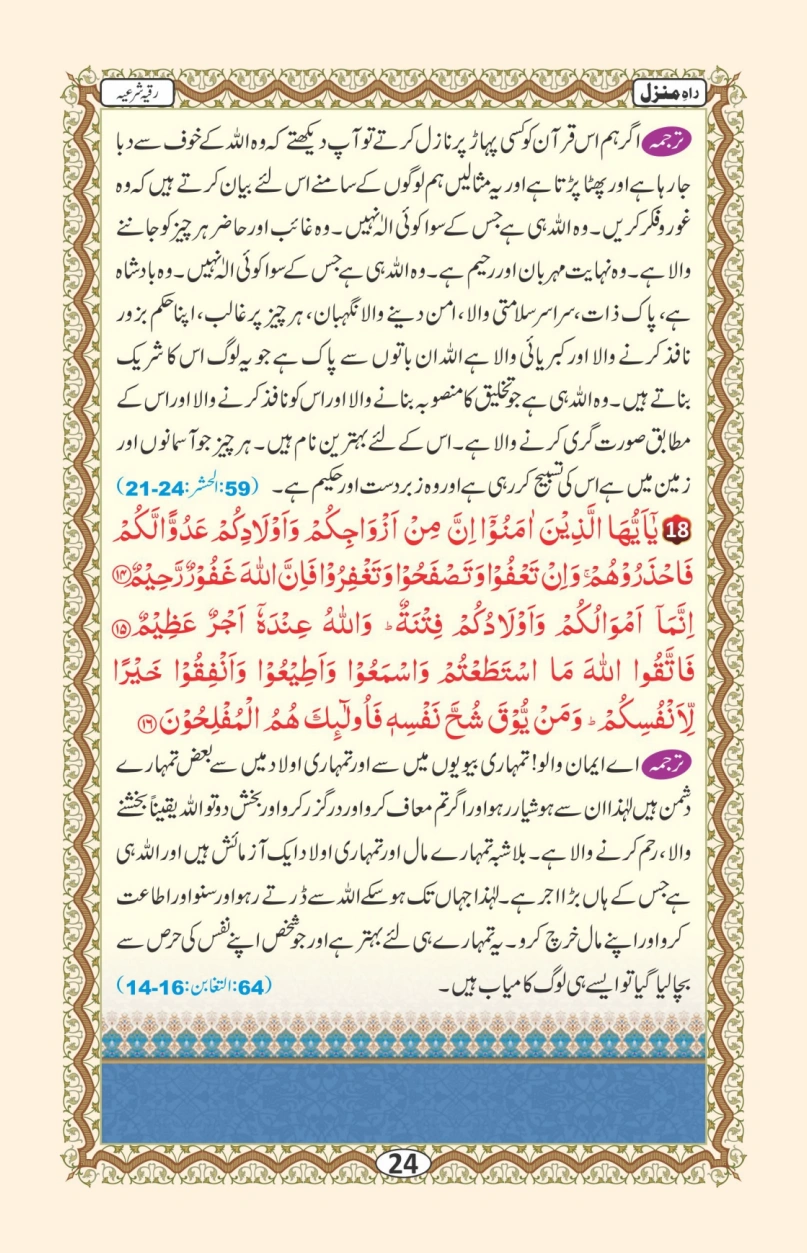 راہِ منزل
رقیہ شرعیہ
ترجمہ اگر ہم اس قرآن کو کسی پہاڑ پر نازل کرتے تو آپ دیکھتے کہ وہ اللہ کے خوف سے دبا
جا رہا ہے اور پھٹا پڑتا ہے اور یہ مثالیں ہم لوگوں کے سامنے اس لئے بیان کرتے ہیں کہ وہ
غور و فکر کریں۔ وہ اللہ ہی ہے جس کے سوا کوئی الٰہ نہیں۔ وہ غائب اور حاضر ہر چیز کو جاننے
والا ہے۔ وہ نہایت مہربان اور رحیم ہے۔ وہ اللہ ہی ہے جس کے سوا کوئی الٰہ نہیں۔ وہ بادشاہ
ہے، پاک ذات، سراسر سلامتی والا، امن دینے والا نگہبان، ہر چیز پر غالب، اپنا حکم بزور
نافذ کرنے والا اور کبریائی والا ہے اللہ ان باتوں سے پاک ہے جو یہ لوگ اس کا شریک
بناتے ہیں۔ وہ اللہ ہی ہے جو تخلیق کا منصوبہ بنانے والا اور اس کو نافذ کرنے والا اور اس کے
مطابق صورت گری کرنے والا ہے۔ اس کے لئے بہترین نام ہیں۔ ہر چیز جو آسمانوں اور
زمین میں ہے اس کی تسبیح کر رہی ہے اور وہ زبردست اور حکیم ہے۔ (59:الحشر:24-21)
18 يٰٓاَيُّهَا الَّذِيْنَ اٰمَنُوْٓا اِنَّ مِنْ اَزْوَاجِكُمْ وَاَوْلَادِكُمْ عَدُوًّا لَّكُمْ
فَاحْذَرُوْهُمْ ۚ وَاِنْ تَعْفُوْا وَتَصْفَحُوْا وَتَغْفِرُوْا فَاِنَّ اللّٰهَ غَفُوْرٌ رَّحِيْمٌ ۱۴
اِنَّمَآ اَمْوَالُكُمْ وَاَوْلَادُكُمْ فِتْنَةٌ ؕ وَاللّٰهُ عِنْدَهٗٓ اَجْرٌ عَظِيْمٌ ۱۵
فَاتَّقُوا اللّٰهَ مَا اسْتَطَعْتُمْ وَاسْمَعُوْا وَاَطِيْعُوْا وَاَنْفِقُوْا خَيْرًا
لِّاَنْفُسِكُمْ ؕ وَمَنْ يُّوْقَ شُحَّ نَفْسِهٖ فَاُولٰٓئِكَ هُمُ الْمُفْلِحُوْنَ ۱۶
ترجمہ اے ایمان والو! تمہاری بیویوں میں سے اور تمہاری اولاد میں سے بعض تمہارے
دشمن ہیں لہٰذا ان سے ہوشیار رہو اور اگر تم معاف کرو اور درگزر کرو اور بخش دو تو اللہ یقیناً بخشنے
والا، رحم کرنے والا ہے۔ بلاشبہ تمہارے مال اور تمہاری اولاد ایک آزمائش ہیں اور اللہ ہی
ہے جس کے ہاں بڑا اجر ہے۔ لہٰذا جہاں تک ہو سکے اللہ سے ڈرتے رہو اور سنو اور اطاعت
کرو اور اپنے مال خرچ کرو۔ یہ تمہارے ہی لئے بہتر ہے اور جو شخص اپنے نفس کی حرص سے
بچا لیا گیا تو ایسے ہی لوگ کامیاب ہیں۔ (64:التغابن:16-14)
24